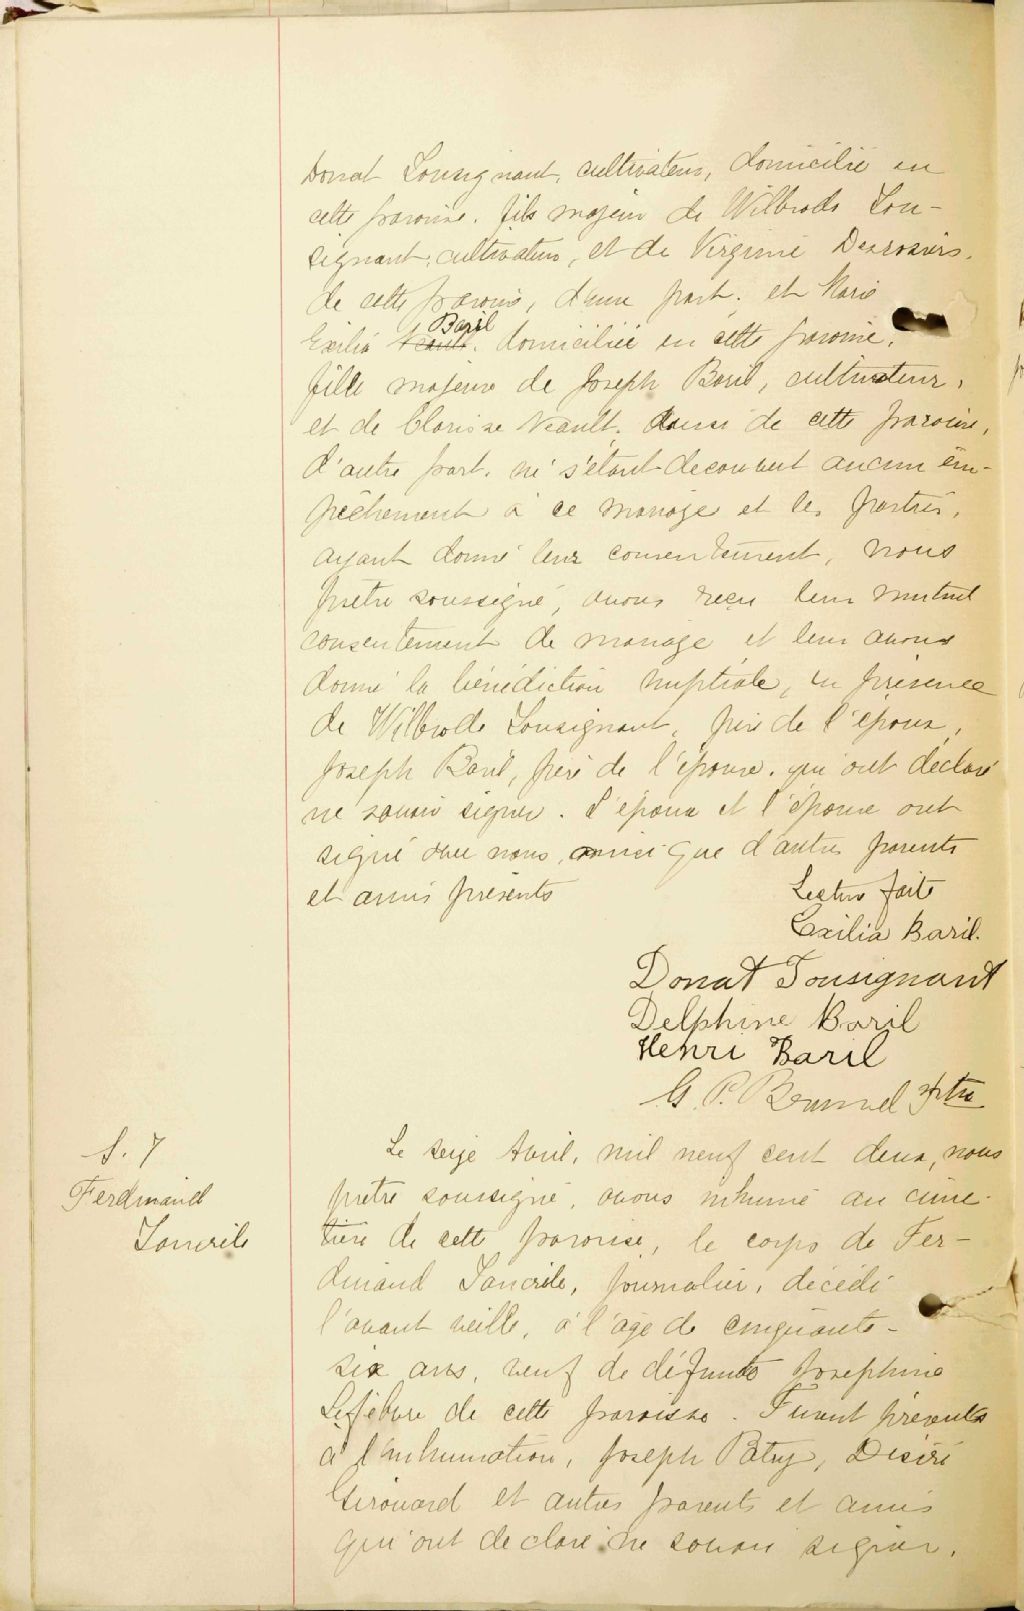 Donat Tousignant, cultivateur, domicilié en
cette paroisse, fils majeur de Wilbrode Tou-
signant, cultivateur, et de Virginie Desrosiers,
de cette paroisse, d'une part, et Marie
Baril
Exilia Veault, domiciliée en cette paroisse,
fille majeure de Joseph Baril, cultivateur,
et de Clarisse Veault, aussi de cette paroisse,
d'autre part, ne s'étant découvert aucun em-
pêchement à ce mariage et les parties,
ayant donné leur consentement, nous
prêtre soussigné, avons reçu leur mutuel
consentement de mariage et leur avons
donné la bénédiction nuptiale, en présence
de Wilbrode Tousignant, père de l'époux,
Joseph Baril, père de l'épouse, qui ont déclaré
ne savoir signer. L'époux et l'épouse ont
signé avec nous, ainsi que d'autres parents
et amis présents
Lecture faite
Exilia Baril.
Donat Tousignant
Delphine Baril
Henri Baril
G. P. Brunel Ptre
S. 7
Ferdinand
Tancrile
Le seize Avril, mil neuf cent deux, nous
prêtre soussigné, avons inhumé au cime-
tière de cette paroisse, le corps de Fer-
dinand Tancrile, journalier, décédé
l'avant veille, à l'âge de cinquante-
six ans, veuf de défunte Josephine
Lefèbvre de cette paroisse. Furent présents
à l'inhumation, Joseph Patry, Désiré
Girouard et autres parents et amis
qui ont déclaré ne savoir signer.